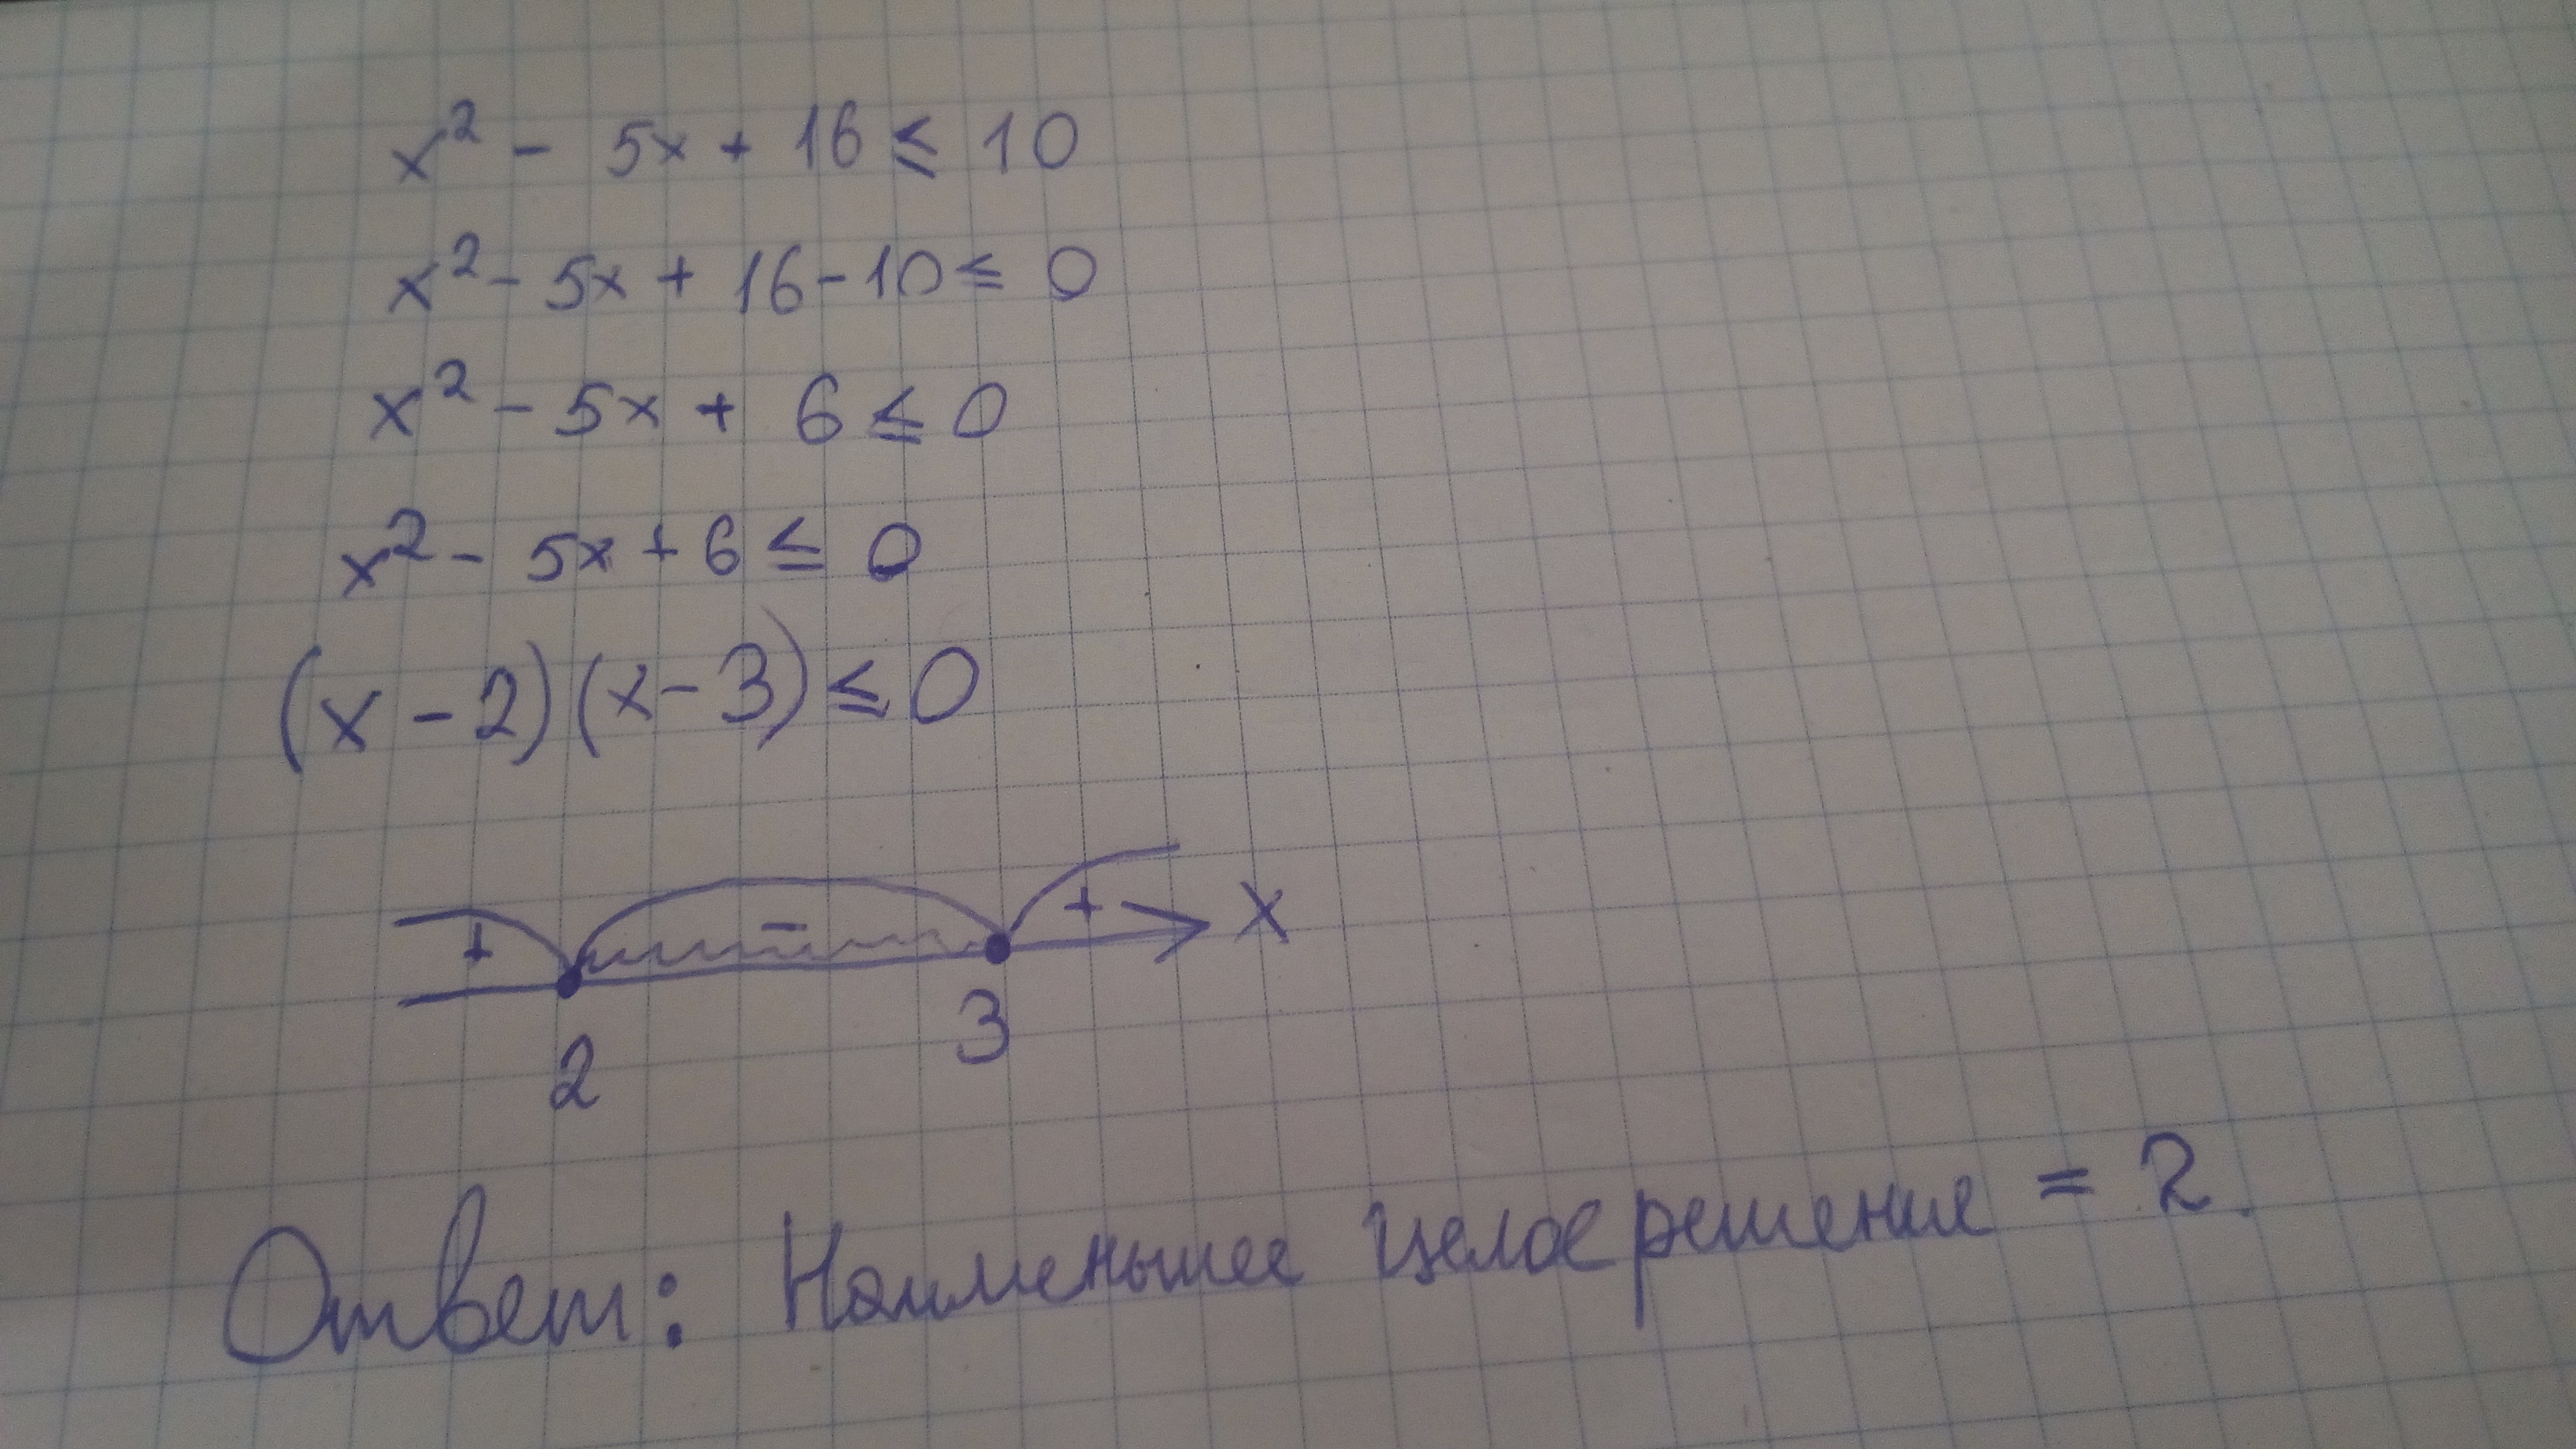 x² - 5x + 16 ≤ 10
x² - 5x + 16 - 10 ≤ 0
x² - 5x + 6 ≤ 0
x² - 5x + 6 ≤ 0
(x - 2)(x - 3) ≤ 0
+ - + x
2 3
Ответ: Наименьшее целое решение = 2.